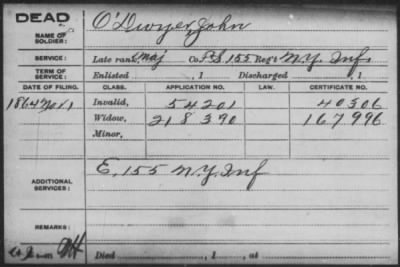 DEAD
NAME OF SOLDIER: O'Dwyer, John
SERVICE: Late rank, Maj Co. F.S. 155 Reg't N.Y. Inf.
TERM OF SERVICE: Enlisted , 1 Discharged , 1
DATE OF FILING. CLASS. APPLICATION NO. LAW. CERTIFICATE NO.
1864 Invalid, 54201 40506
Widow, 218390 167996
Minor,
ADDITIONAL SERVICES: E. 155 N.Y. Inf
REMARKS:
Died , 1 , at